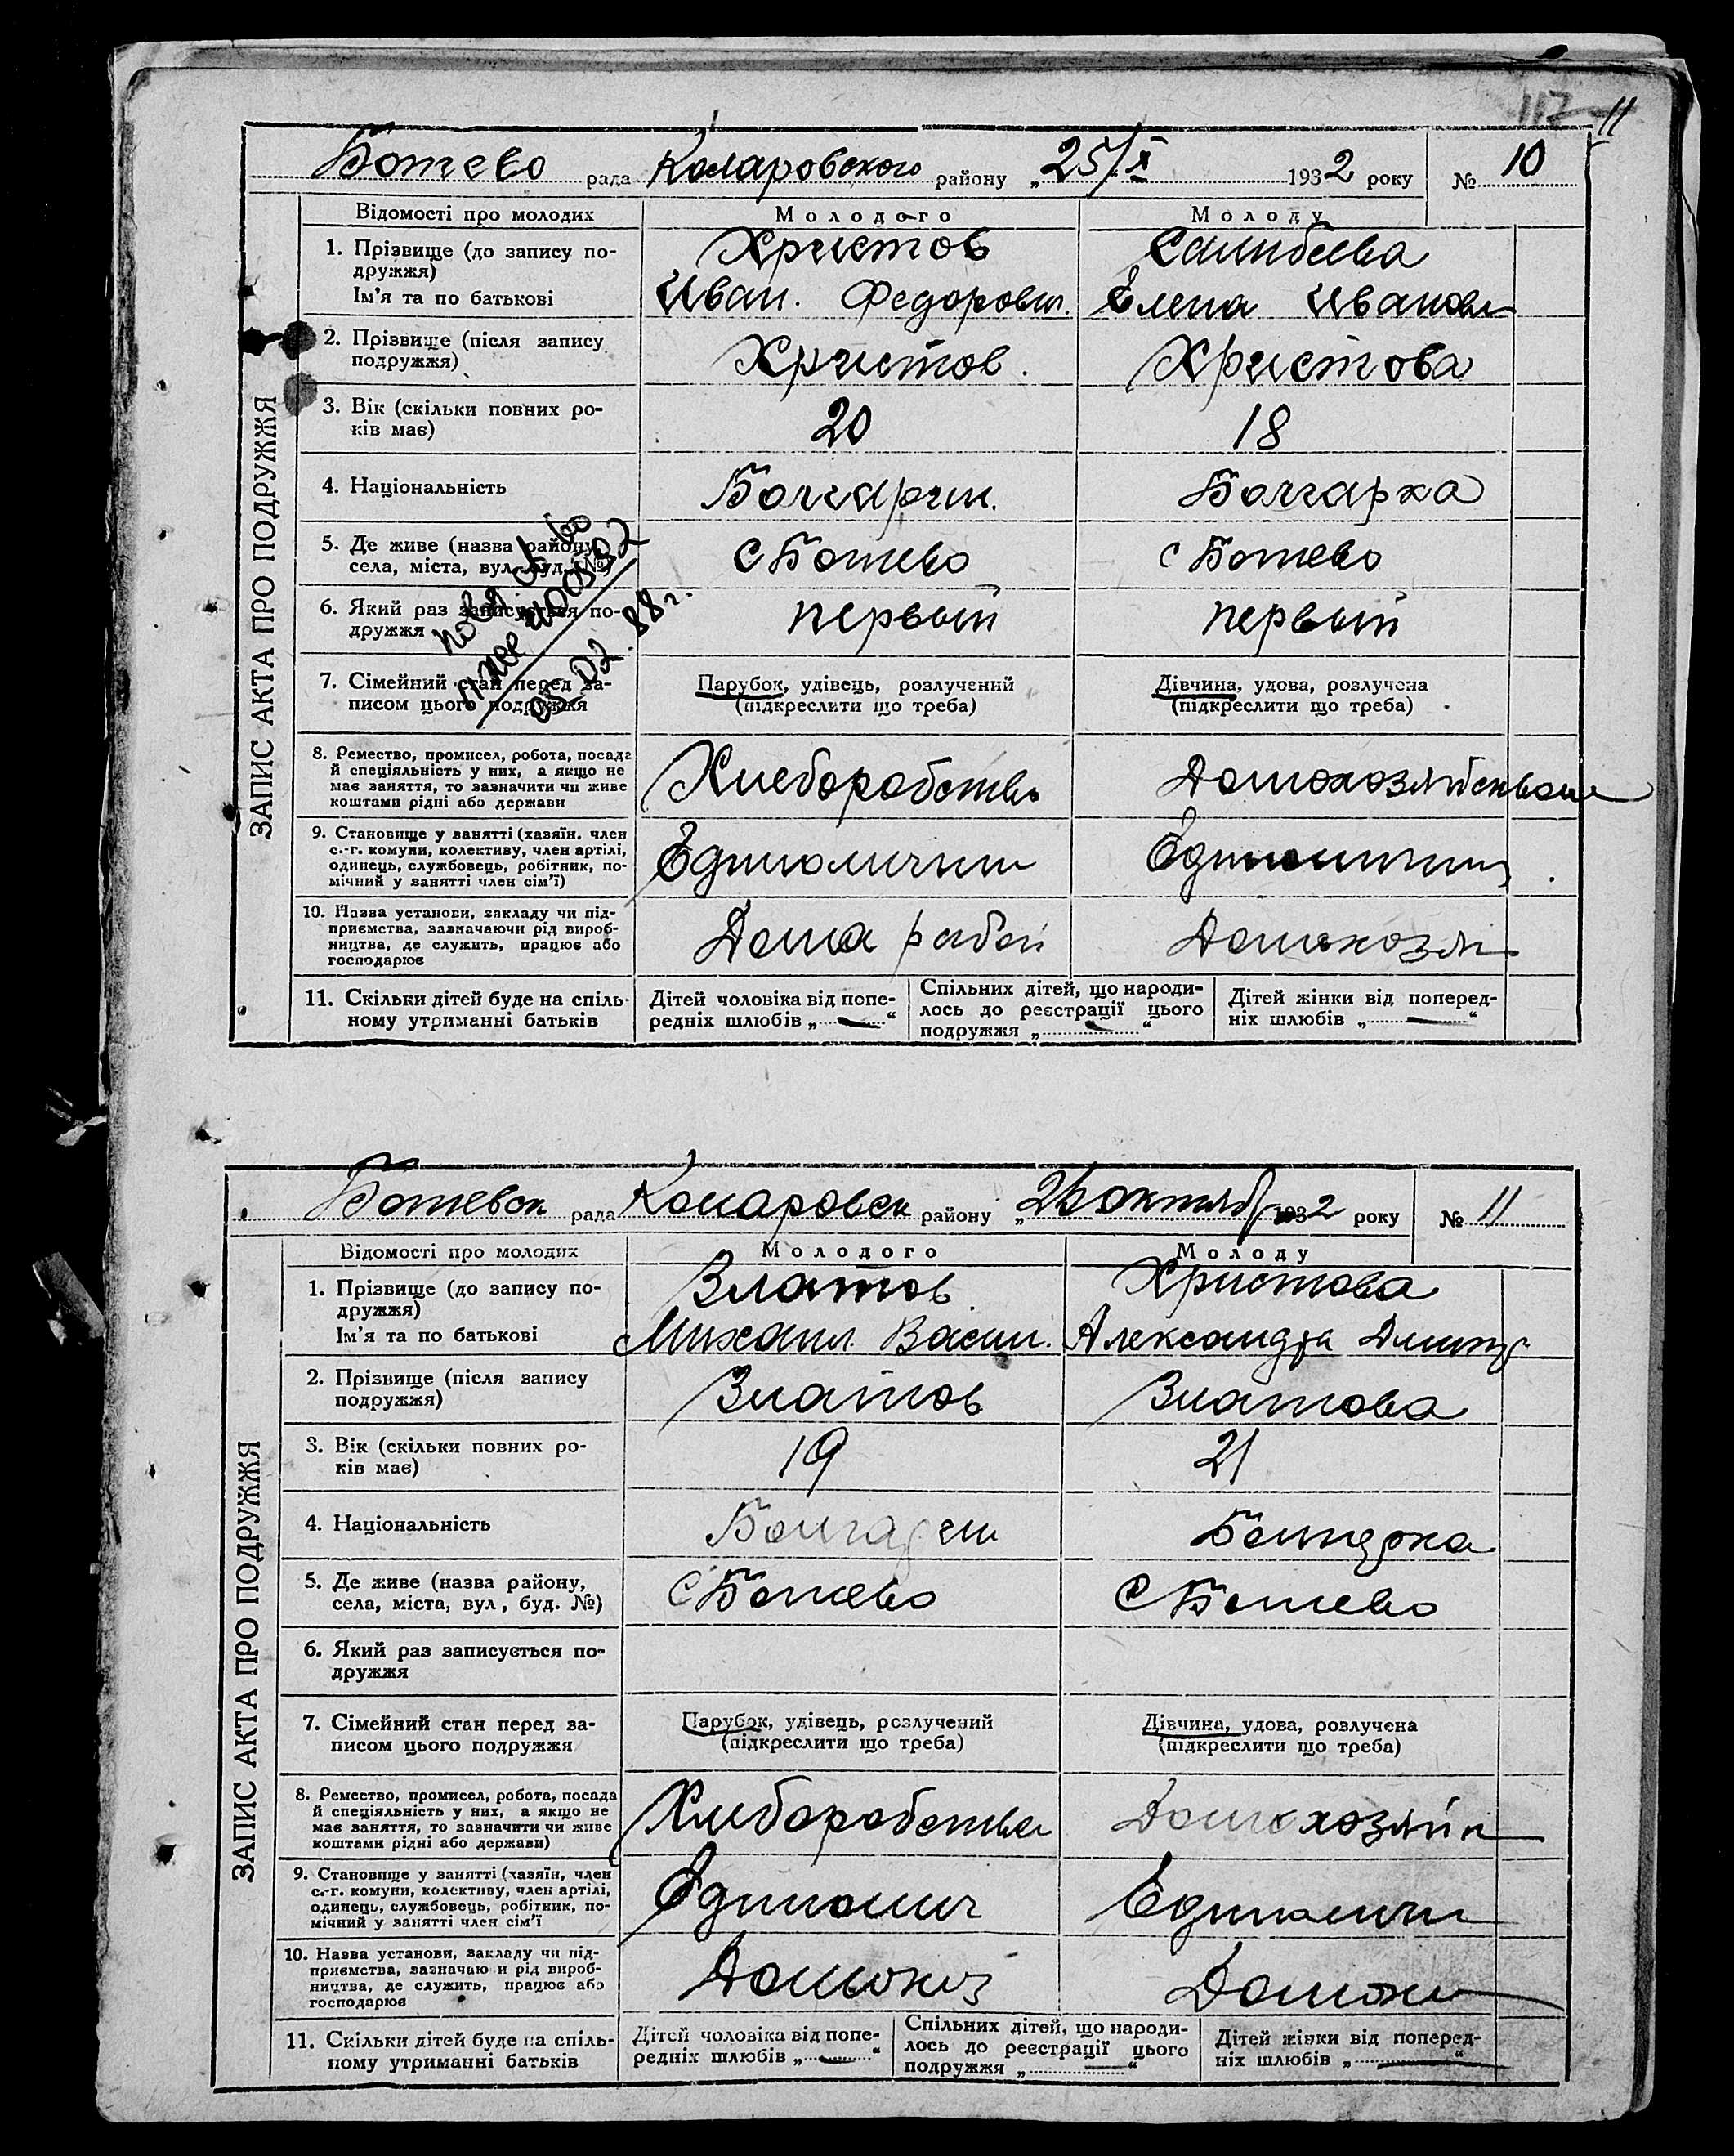 117 11
Ботево рада Коларовского району „25/X 1932 року № 10
ЗАПИС АКТА ПРО ПОДРУЖЖЯ
Відомості про молодих Молодого Молоду
1. Прізвище (до запису по- Христов
дружжя)
Ім'я та по батькові Иван. Федорович. Елена Иванов
2. Прізвище (після запису
подружжя) Христов. Христова
3. Вік (скільки повних ро-
ків має) 20 18
4. Національність Болгарин. Болгарка
5. Де живе (назва району, с Ботево с Ботево
села, міста, вул., буд. №)
6. Який раз записується по- первый первый
дружжя
7. Сімейний стан перед за- Парубок, удівець, розлучений Дівчина, удова, розлучена
писом цього подружжя (підкреслити що треба) (підкреслити що треба)
05.02.88 г.
8. Ремество, промисел, робота, посада
й спеціяльність у них, а якщо не Хлеборобство
має заняття, то зазначити чи живе
коштами рідні або держави
9. Становище у занятті (хазяїн. член
с.-г. комуни, колективу, член артілі,
одинець, службовець, робітник, по-
мічний у занятті член сім'ї)
10. Назва установи, закладу чи під-
приємства, зазначаючи рід вироб- Дома
ництва, де служить, працює або
господарює
11. Скільки дітей буде на спіль- Дітей чоловіка від попе- Спільних дітей, що народи- Дітей жінки від поперед-
ному утриманні батьків редніх шлюбів „—“ лось до реєстрації цього ніх шлюбів „—“
подружжя „—“
Ботевск рада Коларовск району 1932 року № 11
ЗАПИС АКТА ПРО ПОДРУЖЖЯ
Відомості про молодих Молодого Молоду
1. Прізвище (до запису по- Златов Христова
дружжя)
Ім'я та по батькові Михаил Васил. Александра Дмитр
2. Прізвище (після запису
подружжя) Златов Златова
3. Вік (скільки повних ро-
ків має) 19 21
4. Національність Болгарин Болгарка
5. Де живе (назва району, с Ботево с Ботево
села, міста, вул, буд. №)
6. Який раз записується по-
дружжя
7. Сімейний стан перед за- Парубок, удівець, розлучений Дівчина, удова, розлучена
писом цього подружжя (підкреслити що треба) (підкреслити що треба)
8. Ремество, промисел, робота, посада
й спеціяльність у них, а якщо не Хлеборобство Домохозяйк
має заняття, то зазначити чи живе
коштами рідні або держави)
9. Становище у занятті (хазяїн, член
с.-г. комуни, колективу, член артілі, Единолич Единолич
одинець, службовець, робітник, по-
мічний у занятті член сім'ї
10. Назва установи, закладу чи під-
приємства, зазначаю и рід вироб-
ництва, де служить, працює або
господарює
11. Скільки дітей буде на спіль- Дітей чоловіка від попе- Спільних дітей, що народи- Дітей жінки від поперед-
ному утриманні батьків редніх шлюбів „—“ лось до реєстрації цього ніх шлюбів „—“
подружжя „—“